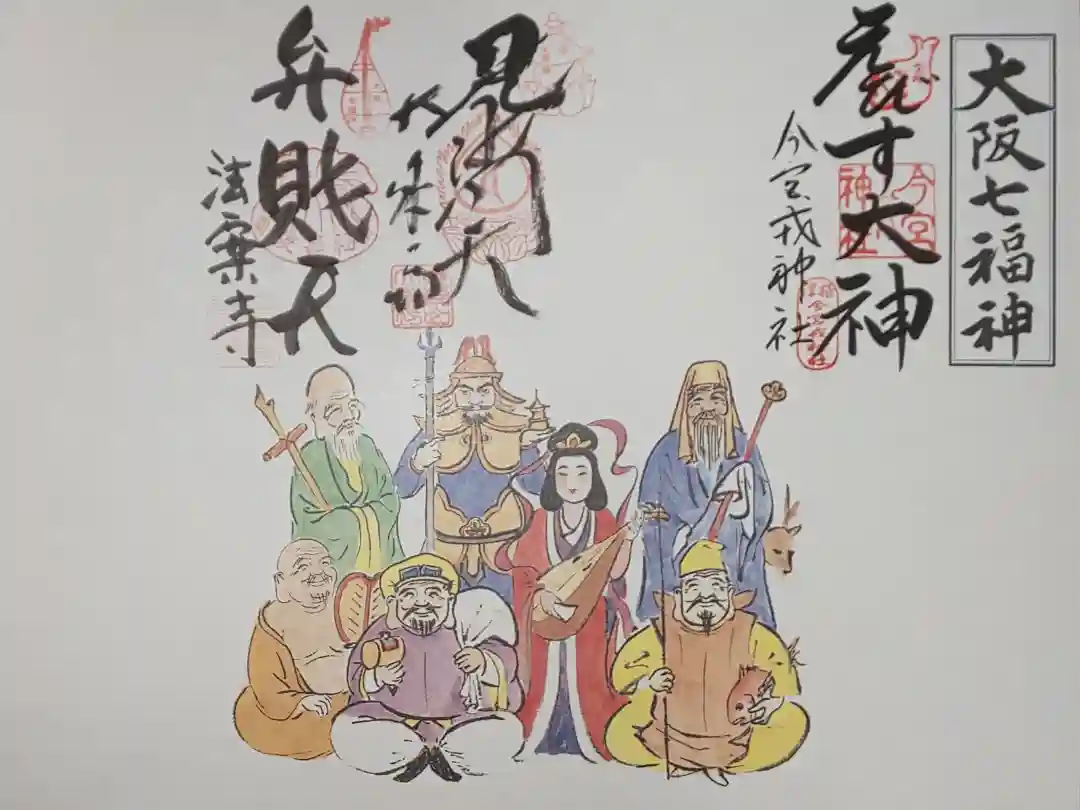 大阪七福神
す大神
今宮
神社
今宮戎神社
毘沙門天
大乗坊
弁財天
法案寺